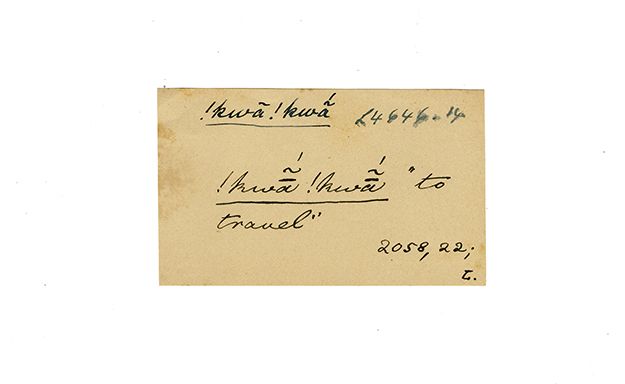 !kwā !kwā́ L4646-14
!kwā̰́ !kwā̰́ "to
travel"
2058, 22;
L.